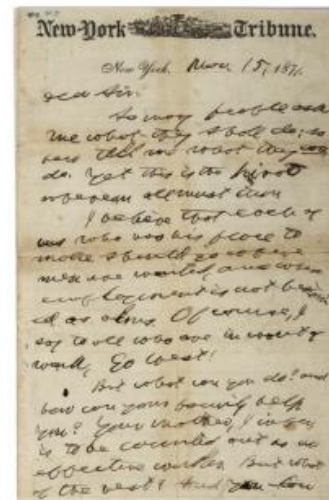 New-York Tribune.
New York, Nov. 15, 1871.
Dear Sir:
So many people ask
me what they shall do; so
few tell me what they can
do. Yet this is the pivot
wherein all must turn
I believe that each of
us who has his place to
make should go where
men are wanted, and where
employment is not
ed as alms. Of course, I
say to all who are in want of
work, Go West!
But what can you do? and
how can your family help
you? Your mother, I infer,
is to be counted out as an
effective worker. But what
of the rest? And you - how